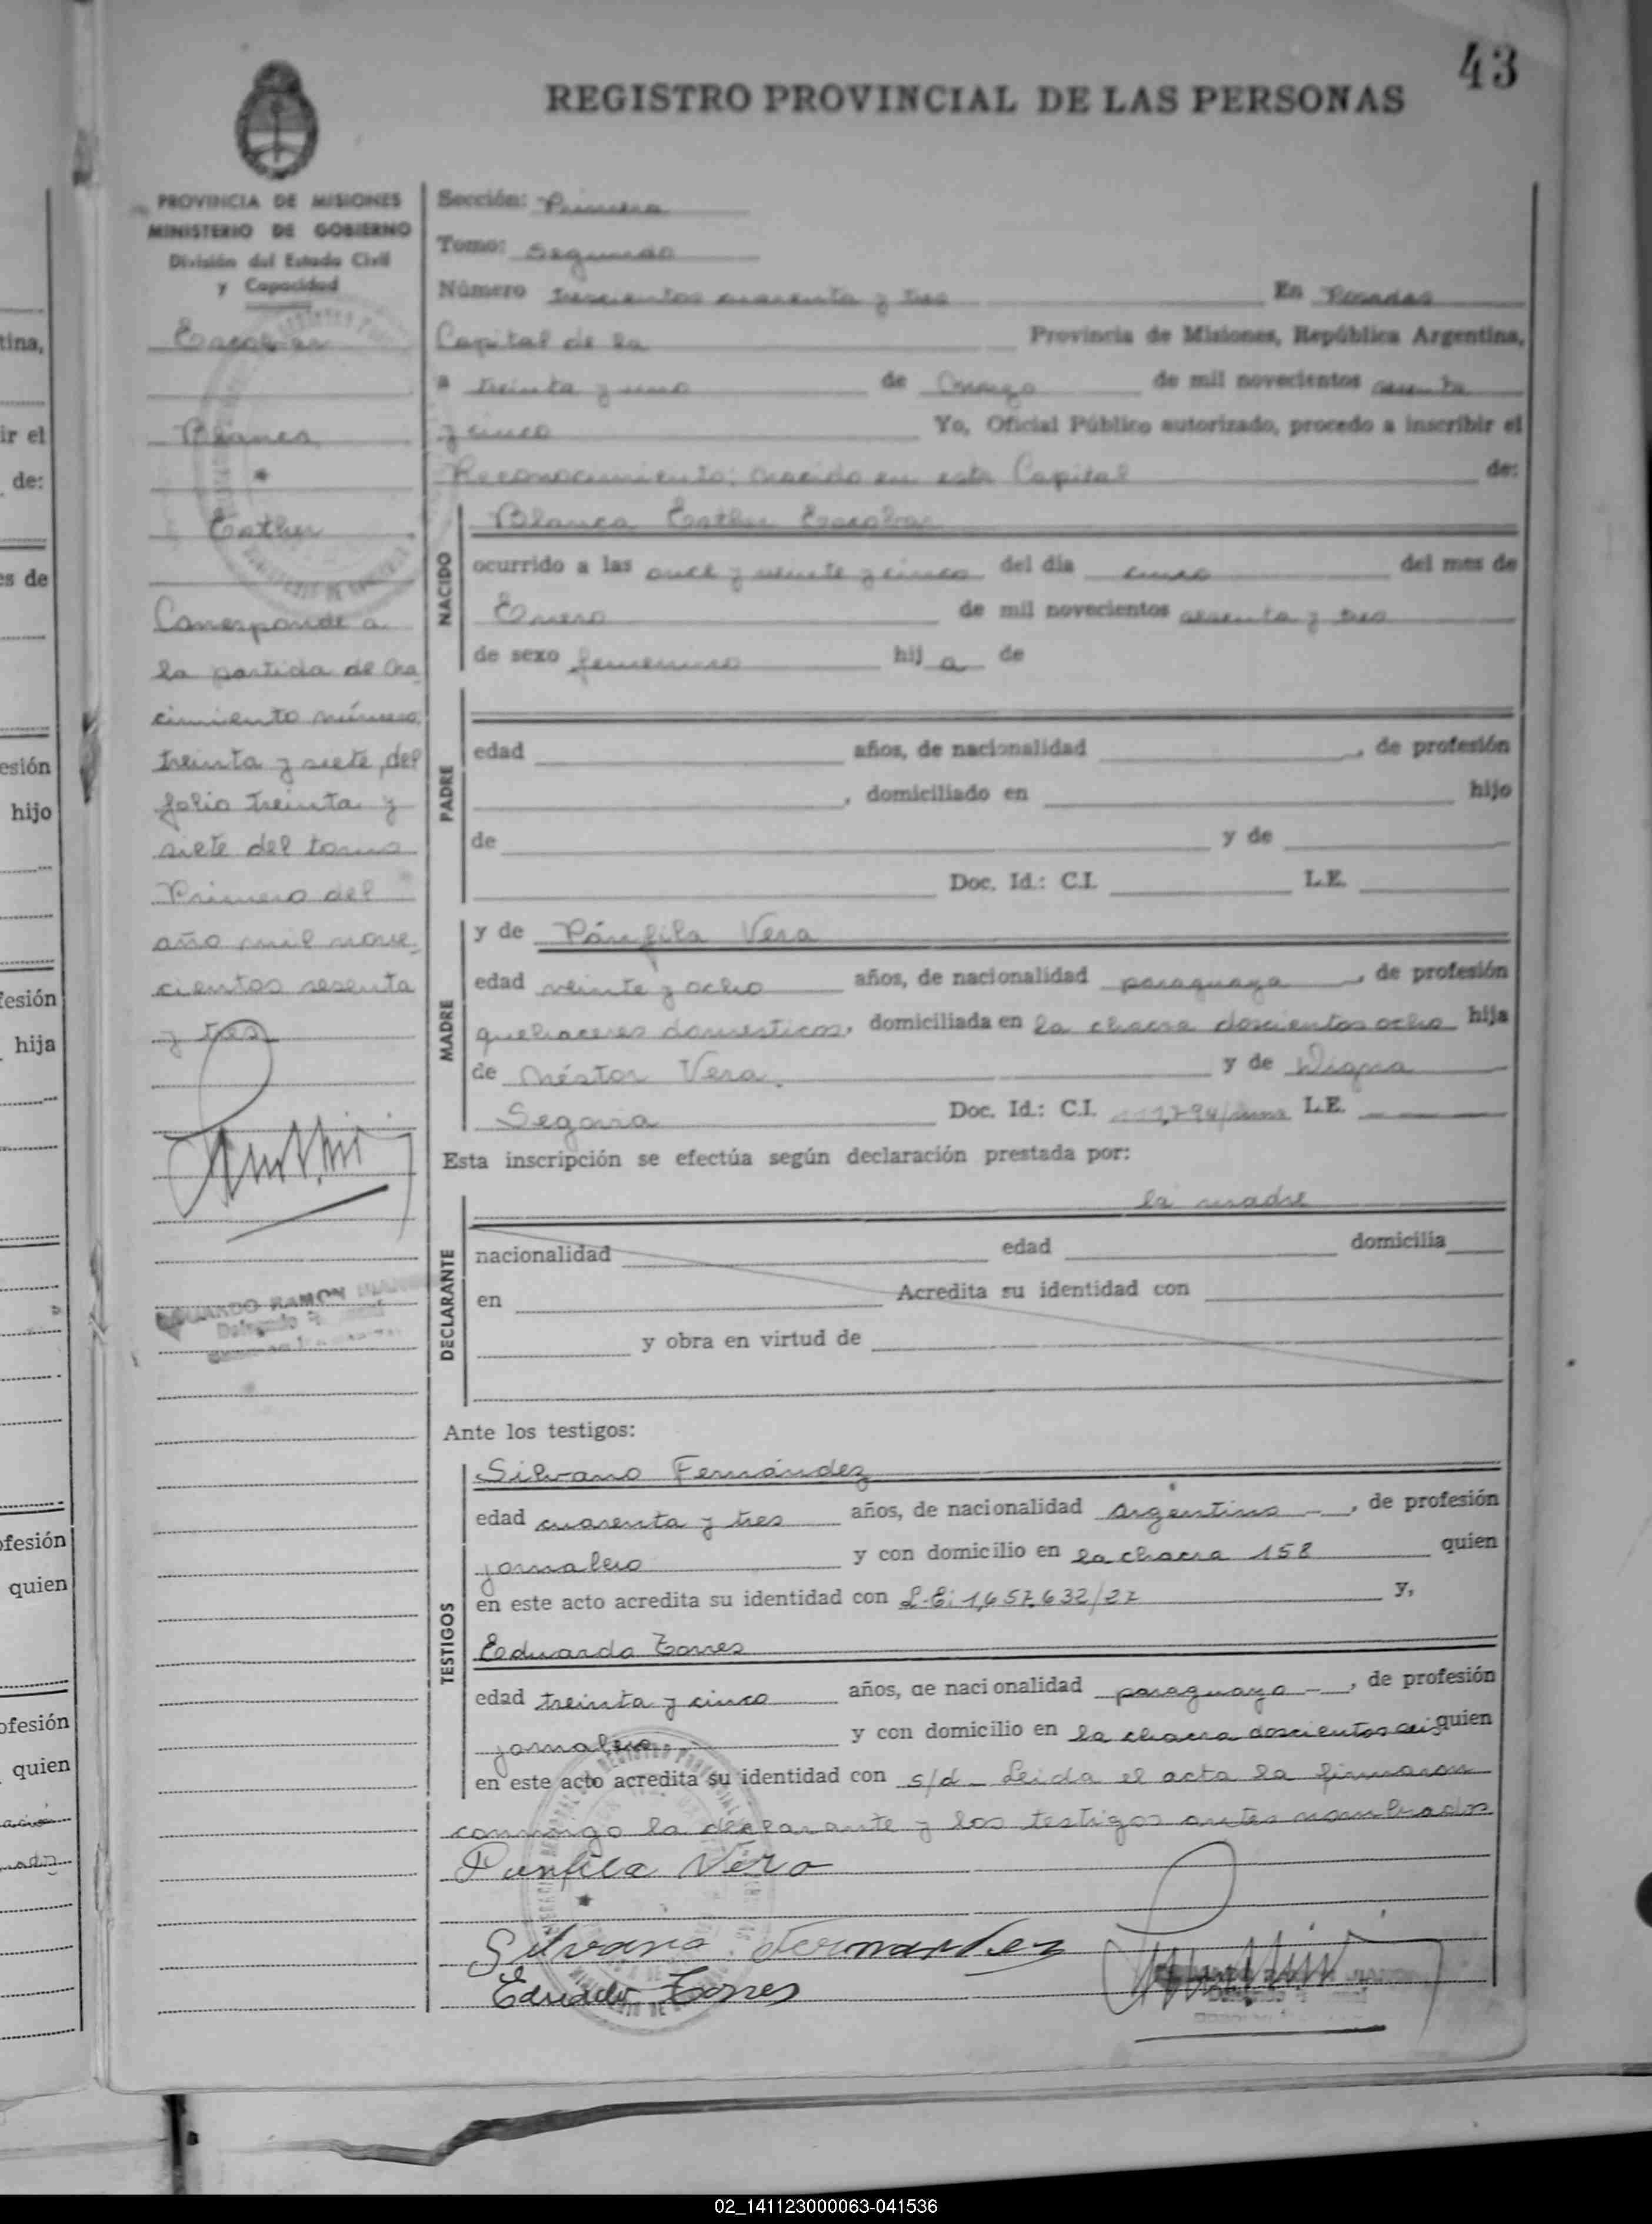 43
REGISTRO PROVINCIAL DE LAS PERSONAS
PROVINCIA DE MISIONES
MINISTERIO DE GOBIERNO
División del Estado Civil
y Capacidad
Escobar
Blanca
Esther
Corresponde a
la partida de na
cimiento número
treinta y siete, del
folio treinta y
siete del tomo
Primero del
año mil nove
cientos sesenta
y tres
EDUARDO RAMON
Delegado
Sección: Primera
Tomo: Segundo
Número trescientos cuarenta y tres En Posadas
Capital de la Provincia de Misiones, República Argentina,
a treinta y uno de Marzo de mil novecientos sesenta
y cinco Yo, Oficial Público autorizado, procedo a inscribir el
Reconocimiento: nacido en esta Capital de:
NACIDO
Blanca Esther Escobar
ocurrido a las once y veinte y cinco del día cinco del mes de
Enero de mil novecientos sesenta y tres
de sexo femenino hij a de
PADRE
edad años, de nacionalidad , de profesión
, domiciliado en hijo
de y de
Doc. Id.: C.I. L.E.
MADRE
y de Pánfila Vera
edad veinte y ocho años, de nacionalidad paraguaya , de profesión
quehaceres domesticos, domiciliada en la chacra doscientos ocho hija
de Néstor Vera. y de Digna
Segovia Doc. Id.: C.I. 111,794/ L.E.
Esta inscripción se efectúa según declaración prestada por:
la madre
DECLARANTE
nacionalidad edad domicilia
en Acredita su identidad con
y obra en virtud de
Ante los testigos:
TESTIGOS
Silvano Fernández
edad cuarenta y tres años, de nacionalidad argentino , de profesión
jornalero y con domicilio en la chacra 158 quien
en este acto acredita su identidad con L.E: 1,657,632/27 y,
Eduardo Torres
edad treinta y cinco años, de nacionalidad paraguayo , de profesión
jornalero y con domicilio en la chacra doscientos quien
en este acto acredita su identidad con s/d _ Leida el acta la firmaron
conmigo la declarante y los testigos antes nombrados
Panfila Vera
Silvano Fernandez
Eduardo Torres
02_141123000063-041536